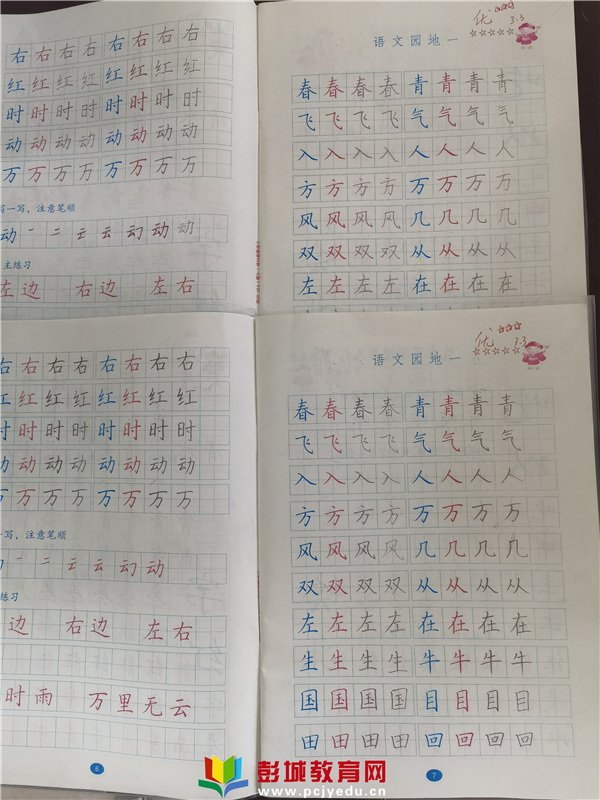 右右右右右右右右
红红红红红红红红
时时时时时时时时
动动动动动动动动
万万万万万万万万
写一写,注意笔顺
动一二云云幻动动
主练习
左边 右边 左右
语文园地一
优
3.3
春春春春青青青青
飞飞飞飞气气气气
入入入入人人人人
方方方方万万万万
风风风风几几几几
双双双双从从从从
左左左左在在在在
右右右右右右右右
红红红红红红红红
时时时时时时时时
动动动动动动动动
万万万万万万万万
一写,注意笔顺
一二云云幻动
练习
边 右边 左右
时雨 万里无云
6
语文园地一
优
3.3
春春春春青青青青
飞飞飞飞气气气气
入入入入人人人人
方方方方万万万万
风风风风几几几几
双双双双从从从从
左左左左在在在在
生生生生牛牛牛牛
国国国国目目目目
田田田田回回回回
7
彭城教育网
www.pcjyedu.cn